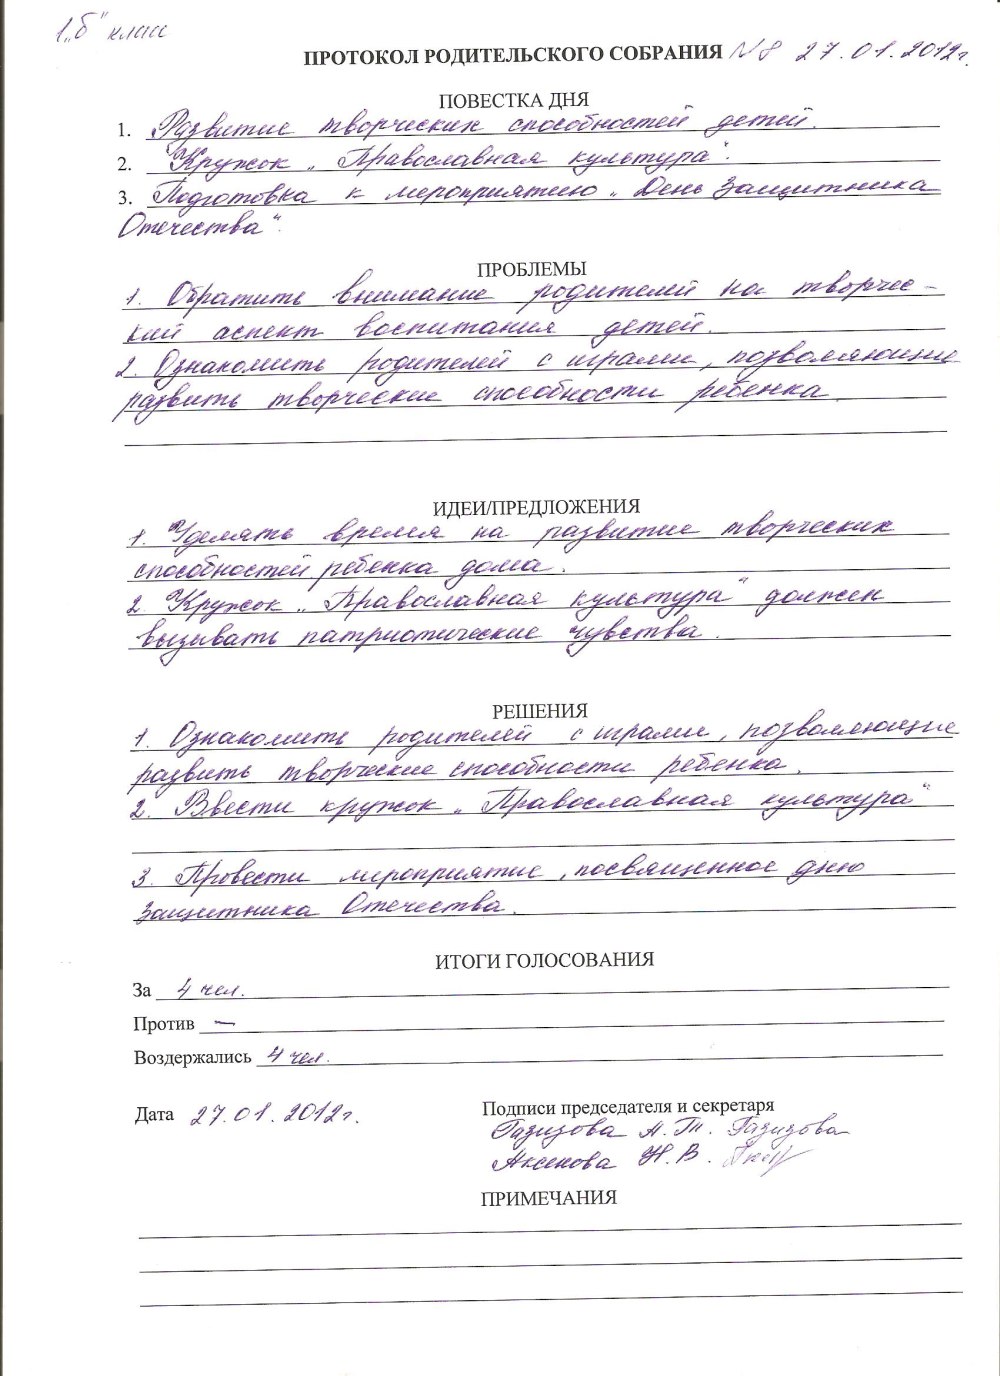 1 „Б" класс
ПРОТОКОЛ РОДИТЕЛЬСКОГО СОБРАНИЯ №8 27.01.2012г.
ПОВЕСТКА ДНЯ
1. Развитие творческих способностей детей.
2. Кружок „Православная культура".
3. Подготовка к мероприятию „День Защитника
Отечества".
ПРОБЛЕМЫ
1. Обратить внимание родителей на творчес-
кий аспект воспитания детей.
2. Ознакомить родителей с играми, позволяющие
развить творческие способности ребенка.
ИДЕИ/ПРЕДЛОЖЕНИЯ
1. Уделять время на развитие творческих
способностей ребенка дома.
2. Кружок „Православная культура" должен
вызывать патриотические чувства.
РЕШЕНИЯ
1. Ознакомить родителей с играми, позволяющие
развить творческие способности ребенка.
2. Ввести кружок „Православная культура"
3. Провести мероприятие, посвященное дню
Защитника Отечества.
ИТОГИ ГОЛОСОВАНИЯ
За 4 чел.
Против —
Воздержались 4 чел.
Дата 27.01.2012г.
Подписи председателя и секретаря
Газизова А. Т. Газизова
Аксенова Н. В.
ПРИМЕЧАНИЯ